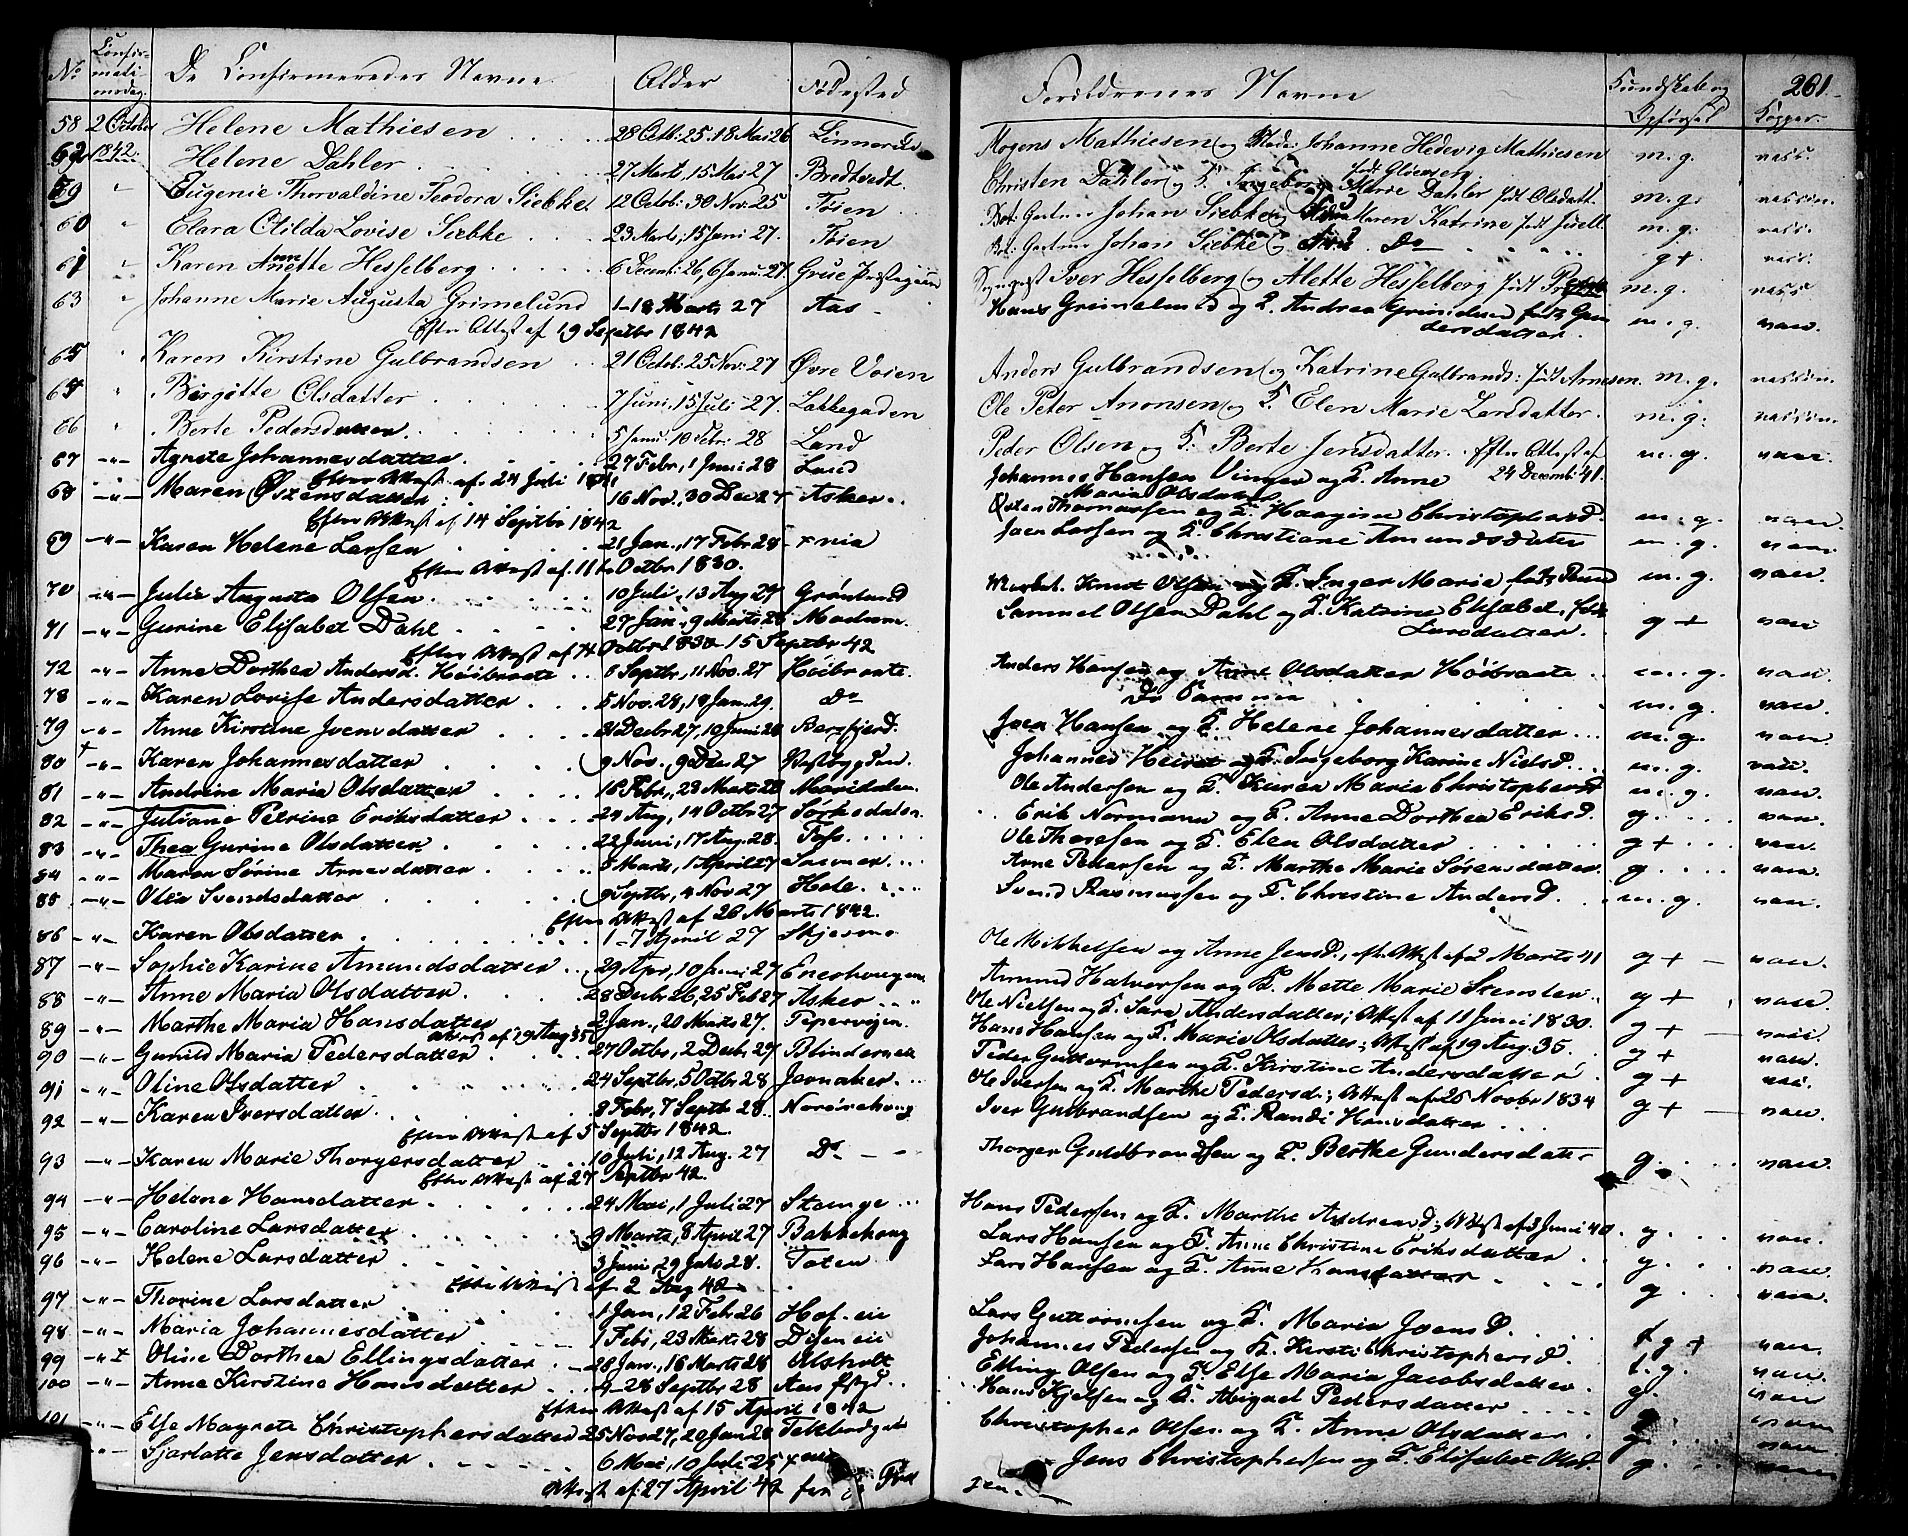 261.
No Confirmationsdag. De Confirmeredes Navne Alder Fødested Forældrenes Navne Kundskab og Opførsel Kopper
58 2 October Helene Mathiesen 28 Octb: 25. 18 Mai 26 Linnerud Mogens Mathiesen og Madm: Johanne Hedevig Mathiesen m. g. vacc.
62 1842. Helene Dahler 27 Marts, 15 Mai 27 Bredtvedt. Christen Dahler og F. Ingeborg Marie Dahler født Olsdatt. m. g. vacc.
59 " Eugenie Thorvaldine Teodora Siebke. 12 Octob: 30 Nov: 25 Tøien Bot: Gartner Johan Siebke og Karen Katrine født Juell m. g. vaccin.
60 " Clara Otilda Lovise Siebke 23 Marts, 15 Juni 27. Tøien Bot: Gartner Johan Siebke og Do m. g. vacc.
61 " Karen Anette Hesselberg 6 Decemb: 26, 6 Janu: 27. Grue Præstegaard Sogneprest Iver Hesselberg og Alette Hesselberg født g + vacc.
63 " Johanne Marie Augusta Grimelund 1-18 Marts 27 Aas Hans Grimelund og F. Andrea Grimelund født Gundersdatter. m. g. vacc
Efter Attest af 19 Septbr 1842
65 " Karen Kirstine Gulbrandsen 21 Octob: 25 Nov: 27 Øvre Voien Anders Gulbrandsen og Katrine Gulbrands: født Arnesen. m. g. vaccin.
64 " Birgitte Olsdatter 7 Juni, 15 Juli 27. Lakkegaden Ole Peter Anonsen og F. Elen Marie Larsdatter m. g. vaccin.
66 " Berte Pedersdatter 5 Janu: 10 Febr: 28 Land Peder Olsen og F. Berte Jensdatter. Efter Attest af 24 Decemb: 41. m. g. vacc.
67 -"- Agnete Johannesdatter 27 Febr, 1 Juni 28 Land Johannes Hansen Vinger og F. Anne Maria Olsdatter
Efter Attest af 24 Juli
68 -"- Maren Østensdatter 16 Nov., 30 Dec 27 Asker Østen Thomassen og F. Haagine Christophersd. m. g. vacc.
Efter Attest af 14 Septbr 1842
69 -"- Karen Helene Larsen 21 Jan., 17 Febr 28 Xnia Joen Larsen og F. Christiane Amundsdatter m. g. vacc.
Efter Attest af 11te Octbr 1830.
70 -"- Julie Augusta Olsen 10 Juli, 13 Aug 27 Grønland Knut Olsen og F. Inger Maria født m. g. vacc.
71 -"- Gurine Elisabet Dahl 27 Jan., 9 Marts 28 Samuel Olsen Dahl og F. Katrine Elisabet, født Larsdatter. g + vacc
Efter Attest af Octbr 1830 15 Septbr 42
72 -"- Anne Dorthea Andersd. Høibraate 8 Septbr, 11 Nov. 27 Høibraate. Anders Hansen og Anne Olsdatter Høibraate m. g. vacc.
78 -"- Karen Lovise Andersdatter 5 Nov. 28, 18 Jan. 29. Do De Samme m. g. vacc.
79 -"- Anne Kirstine Joensdatter 21 Decbr 27, 10 Juni 28 Joen Hansen og F. Helene Johannesdatter m. g. vacc.
80 -"- Karen Johannesdatter 9 Nov. 9 Dec 27 Johannes og F. Ingeborg Karine Nielsd. m. g. vacc.
81 -"- Andrine Maria Olsdatter 16 Febr, 23 Marts 28 Maridalen Ole Andersen og F. Karen Marie Christophersd m. g. vacc.
82 -"- Juliane Petrine Eriksdatter 24 Aug, 14 Octbr 27 Sørkedalen. Erik Normann og F. Anne Dorthea Eriksd. g. vacc.
83 -"- Thea Gurine Olsdatter 22 Juni, 17 Aug. 28. Ole Thoresen og F. Elen Olsdatter g + vacc.
84 -"- Maren Sørine Arnesdatter 8 Marts, 1 April 27 Arne Pedersen og F. Marthe Marie Sørensdatter. g. vacc.
85 -"- Olia Svendsdatter 9 Septbr, 4 Nov 27 Hole Svend Rasmussen og F. Christine Andersd. m. g. vacc.
Efter Attest af 26 Marts 1842.
86 -"- Karen Olsdatter 1-7 April 27 Skjesmo Ole Mikkelsen og Anne Jensd., eft. Attest af 2 Marts 41 g + vacc.
87 -"- Sophie Karine Amundsdatter 29 Apr, 10 Juni 27 Enerhougen Amund Halvorsen og F. Mette Marie g + vacc.
88 -"- Anne Maria Olsdatter 28 Decbr 26, 25 Feb 27 Asker Ole Nielsen og F. Sara Andersdatter; Attest af 11 Juni 1830. g + vacc.
89 -"- Marthe Maria Hansdatter 2 Jan., 20 Marts 27. Pepervigen Hans Hansen og F. Marie Olsdatter; Attest af 19 Aug. 35. g + vacc.
Attest af 19 Aug 35
90 -"- Gunild Maria Pedersdatter 27 Octbr, 2 Decbr 27 Blindernee Peder Guttormsen og F. Kirstine Andersdatter g + vacc.
91 -"- Oline Olsdatter 24 Septbr, 5 Octbr 28 Jevnaker Ole Iversen og F. Marthe Pedersd.; Attest af 25 Novbr 1834 g + vacc.
92 -"- Karen Iversdatter 8 Febr, 7 Septbr 28. Nordrehoug Iver Gulbrandsen og F. Randi Hansdatter g + vacc.
Efter Attest af 5 Septbr 1842.
93 -"- Karen Marie Thorgersdatter 10 Juli, 12 Aug. 27 Do Thorger Guldbrandsen og F. Berthe Gundersdatter g. vacc.
Efter Attest af 27 Septbr 42.
94 -"- Helene Hansdatter 24 Mai, 1 Juli 27 Stange Hans Pedersen og F. Marthe Andreasd; Attest af 3 Juni 40. g. vacc.
95 -"- Caroline Larsdatter 9 Marts, 8 April 27 Bakkehoug Lars Hansen og F. Anne Christine Eriksdatter g. vacc.
96 -"- Helene Larsdatter 3 Juni, 29 Juli 28. Toten Lars Hansen og F. Anne Hansdatter g vacc.
Efter Attest af 2 Aug 42
97 -"- Thorine Larsdatter 1 Jan, 12 Feb 26 Hof-eie Lars Guttormsen og F. Maria Joensd. t. g + vacc.
98 -"- Maria Johannesdatter 1 Febr, 23 Marts 28 Disen eie Johannes Pedersen og F. Kirsti Christophersd. t. g. vacc.
99 -"- Oline Dorthea Ellingsdatter 28 Jan., 16 Marts 28 Alsholt Elling Olsen og F. Else Maria Jacobsdatter g. vacc.
100 -"- Anne Kirstine Hansdatter 4-28 Septbr 28 Hans Kjelsen og F. Abigael Pedersdatter g. vacc.
Efter Attest af 15 April 1842
101 -"- Else Magrete Christophersdatter 25 Nov 27, 20 Jan 28 Christopher Olsen og F. Anne Olsdatter g. vacc
-"- Sjarlotte Jensdatter 6 Mai, 10 Juli 25 Xnia Jens Christophersen og F. Elisabet Olsd. g. vacc
Attest af 27 April 42